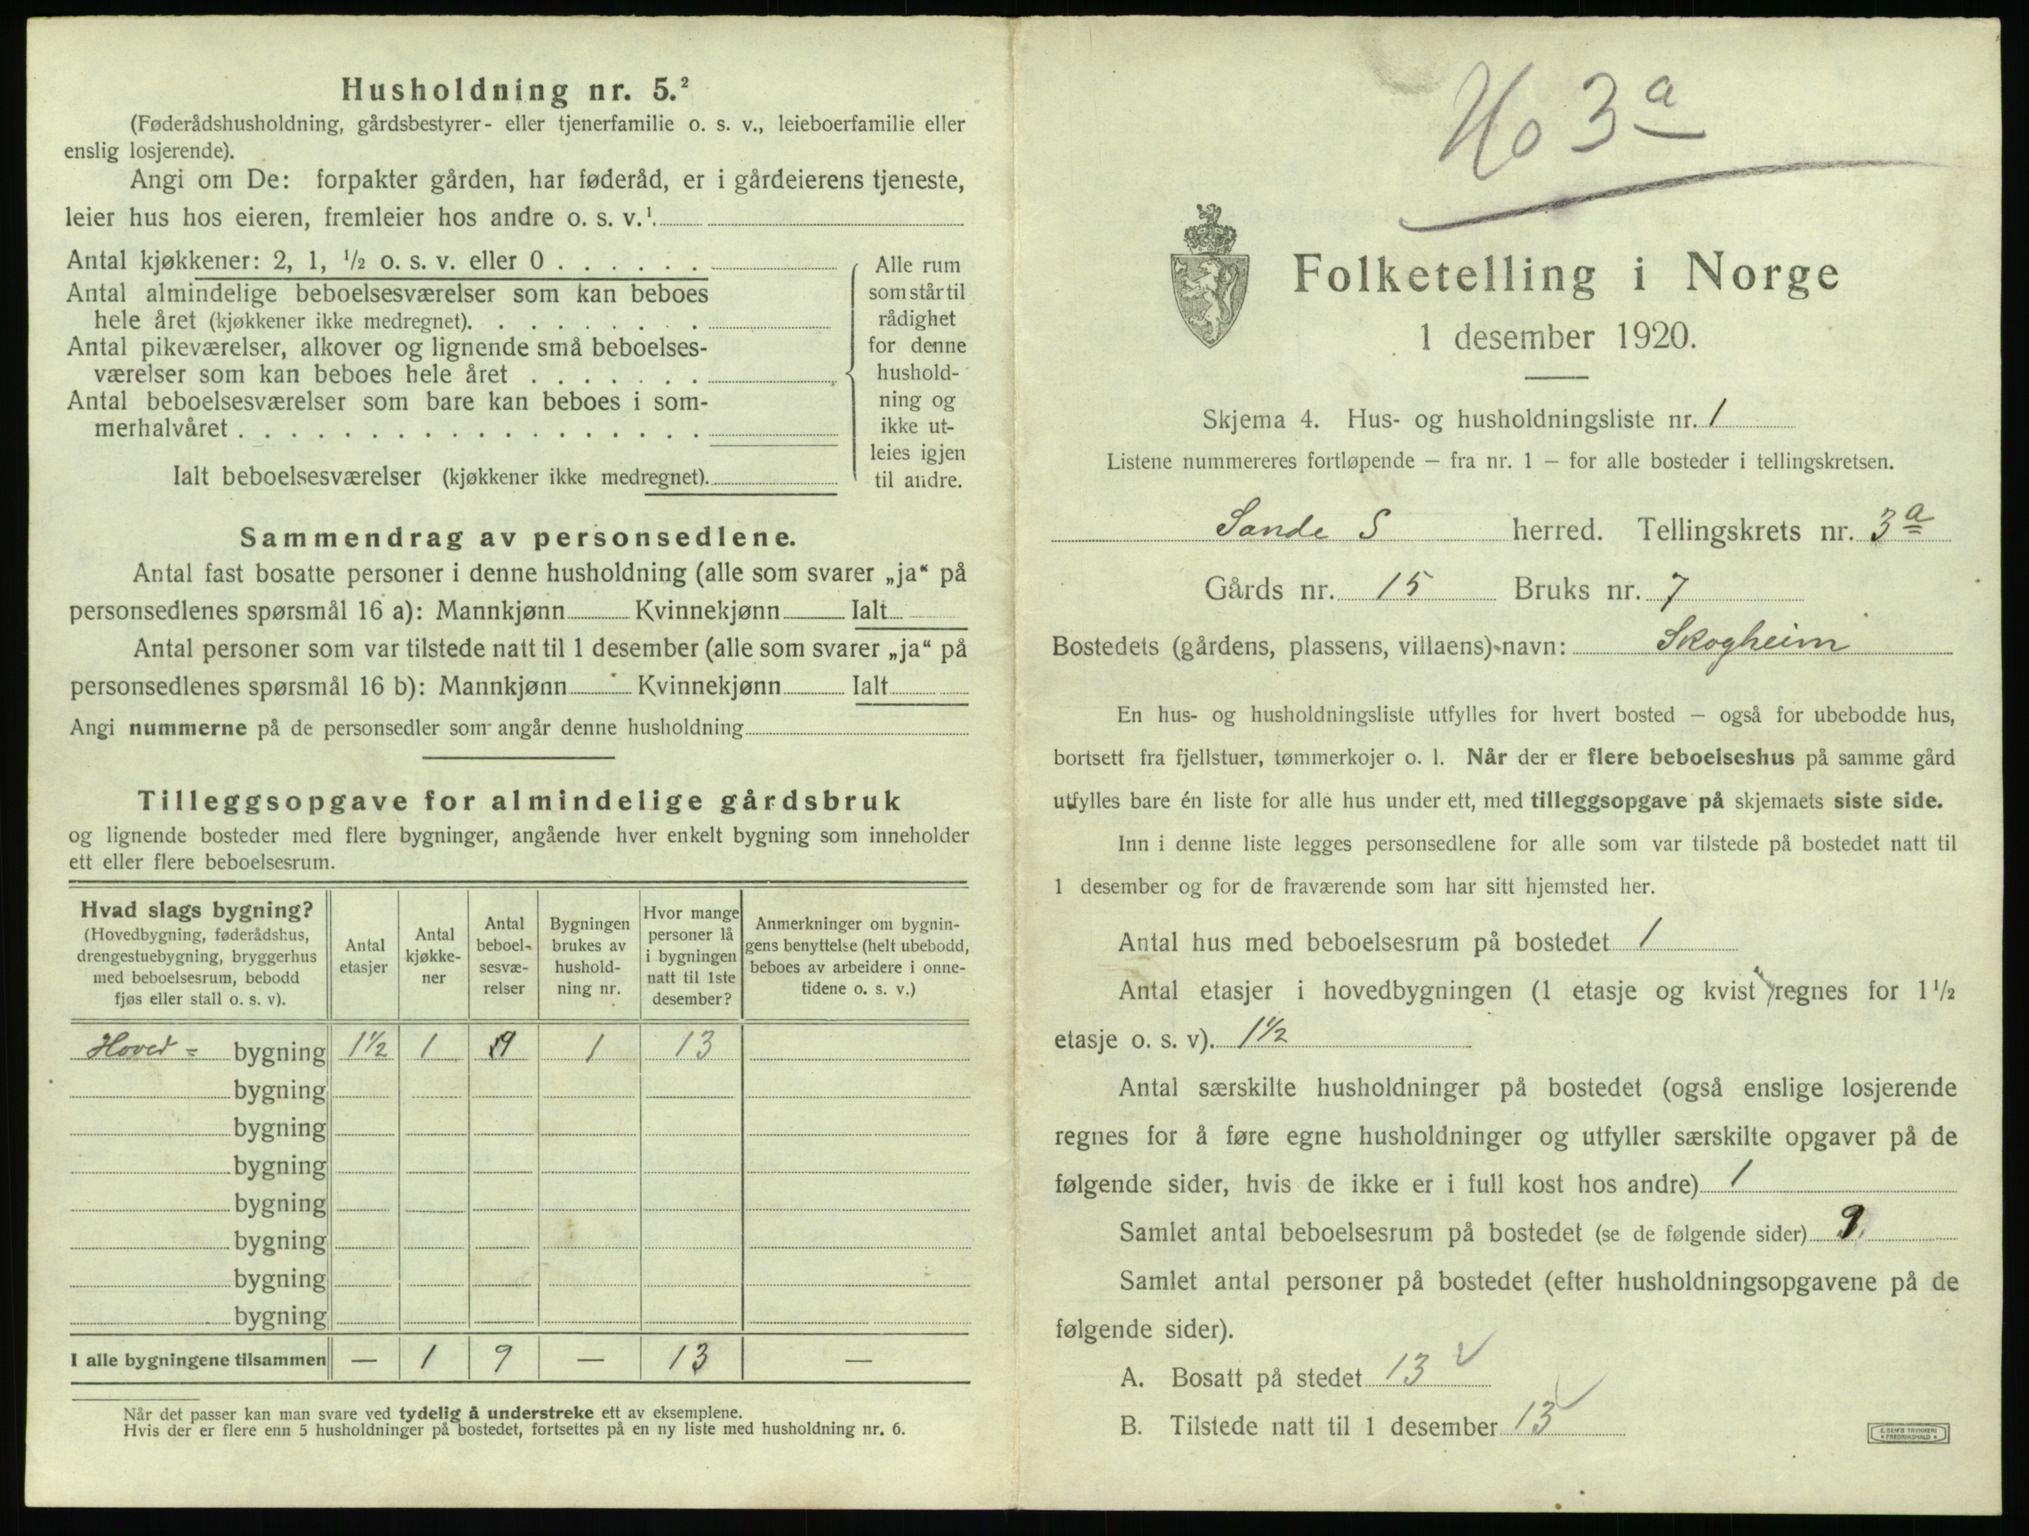 Husholdning nr. 5.²
(Føderådshusholdning, gårdsbestyrer- eller tjenerfamilie o. s. v., leieboerfamilie eller
enslig losjerende).
Angi om De: forpakter gården, har føderåd, er i gårdeierens tjeneste,
leier hus hos eieren, fremleier hos andre o. s. v.¹
Antal kjøkkener: 2, 1, ½ o. s. v. eller 0 . . . . . .
Antal almindelige beboelsesværelser som kan beboes
hele året (kjøkkener ikke medregnet). . . . . . . . .
Antal pikeværelser, alkover og lignende små beboelses-
værelser som kan beboes hele året . . . . . . .
Antal beboelsesværelser som bare kan beboes i som-
merhalvåret . . . . . . . . . . . . . . . . . .
Ialt beboelsesværelser (kjøkkener ikke medregnet).
Alle rum
som står til
rådighet
for denne
hushold-
ning og
ikke ut-
leies igjen
til andre.
Sammendrag av personsedlene.
Antal fast bosatte personer i denne husholdning (alle som svarer „ja“ på
personsedlenes spørsmål 16 a): Mannkjønn Kvinnekjønn Ialt
Antal personer som var tilstede natt til 1 desember (alle som svarer „ja“ på
personsedlenes spørsmål 16 b): Mannkjønn Kvinnekjønn Ialt
Angi nummerne på de personsedler som angår denne husholdning
Tilleggsopgave for almindelige gårdsbruk
og lignende bosteder med flere bygninger, angående hver enkelt bygning som inneholder
ett eller flere beboelsesrum.
Hvad slags bygning?
(Hovedbygning, føderådshus,
drengestuebygning, bryggerhus
med beboelsesrum, bebodd
fjøs eller stall o. s. v).
Antal
etasjer
Antal
kjøkke-
ner
Antal
beboel-
sesvæ-
relser
Bygningen
brukes av
hushold-
ning nr.
Hvor mange
personer lå
i bygningen
natt til 1ste
desember?
Anmerkninger om bygnin-
gens benyttelse (helt ubebodd,
beboes av arbeidere i onne-
tidene o. s. v.)
Hoved- bygning 1½ 1 9 1 13
bygning
bygning
bygning
bygning
bygning
bygning
bygning
I alle bygningene tilsammen — 1 9 — 13 —
Når det passer kan man svare ved tydelig å understreke ett av eksemplene.
Hvis der er flere enn 5 husholdninger på bostedet, fortsettes på en ny liste med husholdning nr. 6.
Ho 3a
Folketelling i Norge
1 desember 1920.
Skjema 4. Hus- og husholdningsliste nr. 1
Listene nummereres fortløpende — fra nr. 1 — for alle bosteder i tellingskretsen.
Sande S herred. Tellingskrets nr. 3a
Gårds nr. 15 Bruks nr. 7
Bostedets (gårdens, plassens, villaens) navn: Skogheim
En hus- og husholdningsliste utfylles for hvert bosted — også for ubebodde hus,
bortsett fra fjellstuer, tømmerkojer o. l. Når der er flere beboelseshus på samme gård
utfylles bare én liste for alle hus under ett, med tilleggsopgave på skjemaets siste side.
Inn i denne liste legges personsedlene for alle som var tilstede på bostedet natt til
1 desember og for de fraværende som har sitt hjemsted her.
Antal hus med beboelsesrum på bostedet 1
Antal etasjer i hovedbygningen (1 etasje og kvist regnes for 1½
etasje o. s. v). 1½
Antal særskilte husholdninger på bostedet (også enslige losjerende
regnes for å føre egne husholdninger og utfyller særskilte opgaver på de
følgende sider, hvis de ikke er i full kost hos andre) 1
Samlet antal beboelsesrum på bostedet (se de følgende sider) 9.
Samlet antal personer på bostedet (efter husholdningsopgavene på de
følgende sider).
A. Bosatt på stedet 13 ✓
B. Tilstede natt til 1 desember 13 ✓
E. SEM'S TRYKKERI
FREDRIKSHALD